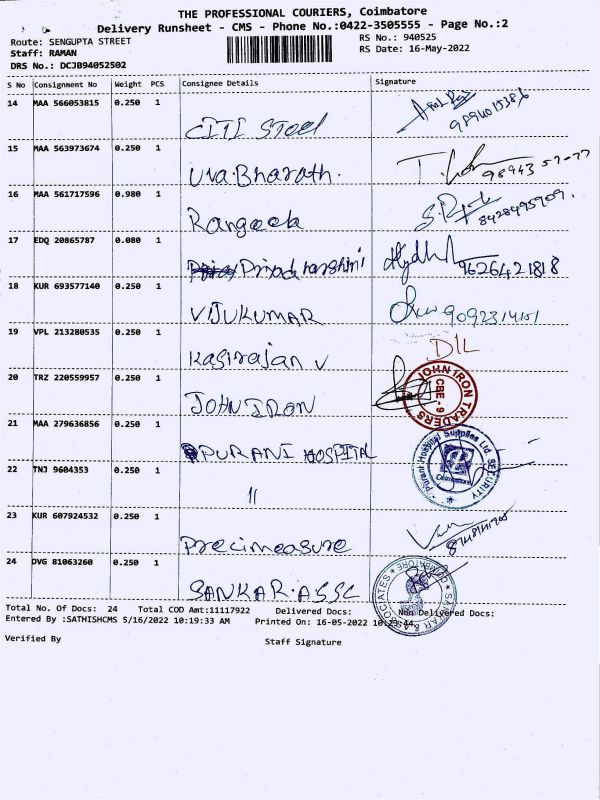 THE PROFESSIONAL COURIERS, Coimbatore
Delivery Runsheet - CMS - Phone No.:0422-3505555 - Page No.:2
Route: SENGUPTA STREET RS No.: 940525
Staff: RAMAN RS Date: 16-May-2022
DRS No.: DCJB94052502
S No Consignment No Weight PCS Consignee Details Signature
14 MAA 566053815 0.250 1 CITI Steel
15 MAA 563973674 0.250 1 Uva.Bharath.
16 MAA 561717596 0.980 1 Rangeela
17 EDQ 20865787 0.080 1 Priyadharshini 9626421818
18 KUR 693577140 0.250 1 VIJUKUMAR 9092314151
19 VPL 213280535 0.250 1 Kasirajan v DIL
20 TRZ 220559957 0.250 1 JOHN IRON JOHN IRON TRADERS CBE-9
21 MAA 279636856 0.250 1 PURANI HOSPITAL Purani Hospital Supplies Ltd SECURITY Coimbatore
22 TNJ 9604353 0.250 1 11
23 KUR 607924532 0.250 1 Precimeasure
24 DVG 81063260 0.250 1 SANKAR.ASSC SANKAR & ASSOCIATES COIMBATORE
Total No. Of Docs: 24 Total COD Amt:11117922 Delivered Docs: Non Delivered Docs:
Entered By :SATHISHCMS 5/16/2022 10:19:33 AM Printed On: 16-05-2022 10:23:44
Verified By Staff Signature